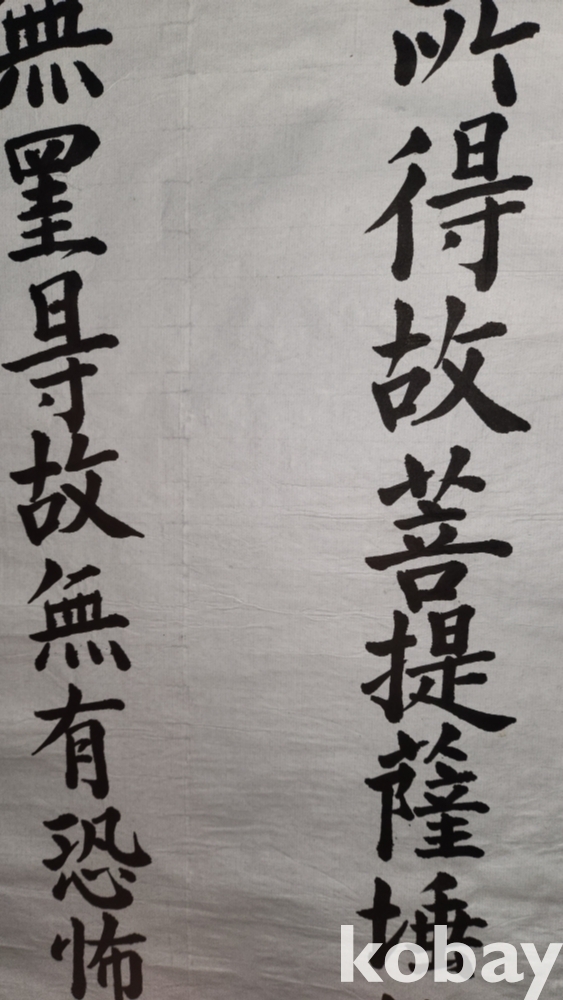 所得故菩提薩埵
無罣㝵故無有恐怖
kobay